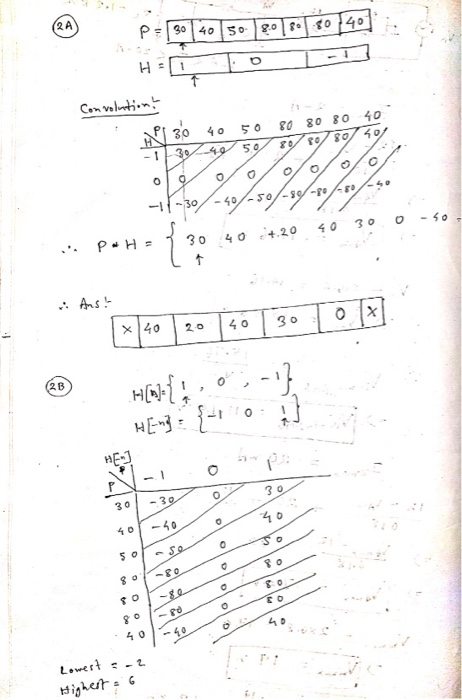 2A P = 30 40 50 80 80 80 40
↑
H = 1 0 -1
↑
Convolution:-
P 30 40 50 80 80 80 40
H
-1 30 40 50 80 80 80 40
0 0 0 0 0 0 0 0
-1 -30 -40 -50 -80 -80 -80 -40
∴ P * H = { 30 40 +20 40 30 0 -40 -
↑
∴ Ans:-
X 40 20 40 30 0 X
2B H[n] = { 1 , 0 , -1 }
↑
H[-n] = { -1 0 1 }
↑
H[-n]
P -1 0 1
30 -30 0 30
40 -40 0 40
50 -50 0 50
80 -80 0 80
80 -80 0 80
80 -80 0 80
40 -40 0 40
Lowest = -2
Highest = 6